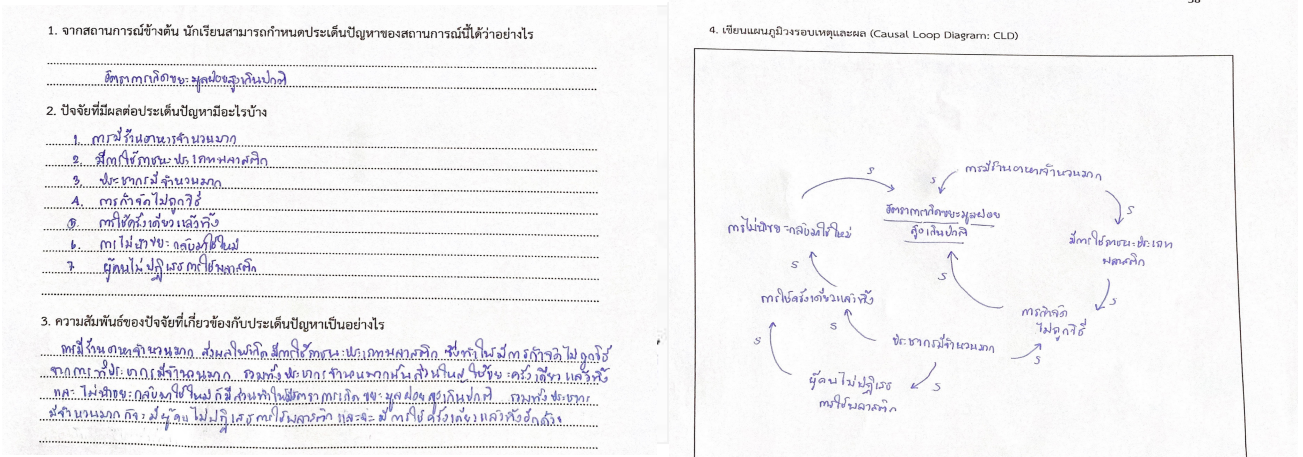 1. จากสถานการณ์ข้างต้น นักเรียนสามารถกำหนดประเด็นปัญหาของสถานการณ์นี้ได้ว่าอย่างไร
อัตราการเกิดขยะมูลฝอยสูงเกินปกติ
2. ปัจจัยที่มีผลต่อประเด็นปัญหามีอะไรบ้าง
1. การมีร้านอาหารจำนวนมาก
2. มีการใช้ภาชนะประเภทพลาสติก
3. ประชากรมีจำนวนมาก
4. การกำจัดไม่ถูกวิธี
5. การใช้ครั้งเดียวแล้วทิ้ง
6. การไม่นำขยะกลับมาใช้ใหม่
7 ผู้คนไม่ปฏิเสธการใช้พลาสติก
3. ความสัมพันธ์ของปัจจัยที่เกี่ยวข้องกับประเด็นปัญหาเป็นอย่างไร
การมีร้านอาหารจำนวนมาก ส่งผลให้เกิดมีการใช้ภาชนะประเภทพลาสติก ซึ่งทำให้มีการกำจัดไม่ถูกวิธี
จากการที่ประชากรมีจำนวนมาก รวมทั้งประชากรจำนวนมากนั้นส่วนใหญ่ใช้ขยะครั้งเดียวแล้วทิ้ง
และไม่นำขยะกลับมาใช้ใหม่ก็มีส่วนทำให้อัตราการเกิดขยะมูลฝอยสูงเกินปกติ รวมทั้งประชากร
มีจำนวนมากก็จะมีผู้คนไม่ปฏิเสธการใช้พลาสติกและจะมีการใช้ครั้งเดียวแล้วทิ้งอีกด้วย
4. เขียนแผนภูมิวงรอบเหตุและผล (Causal Loop Diagram: CLD)
การมีร้านอาหารจำนวนมาก
S
S
S
อัตราการเกิดขยะมูลฝอย
สูงเกินปกติ
การไม่นำขยะกลับมาใช้ใหม่
มีการใช้ภาชนะประเภท
พลาสติก
S
S
S
การใช้ครั้งเดียวแล้วทิ้ง
การกำจัด
ไม่ถูกวิธี
S
S
ประชากรมีจำนวนมาก
S
S
ผู้คนไม่ปฏิเสธ
การใช้พลาสติก